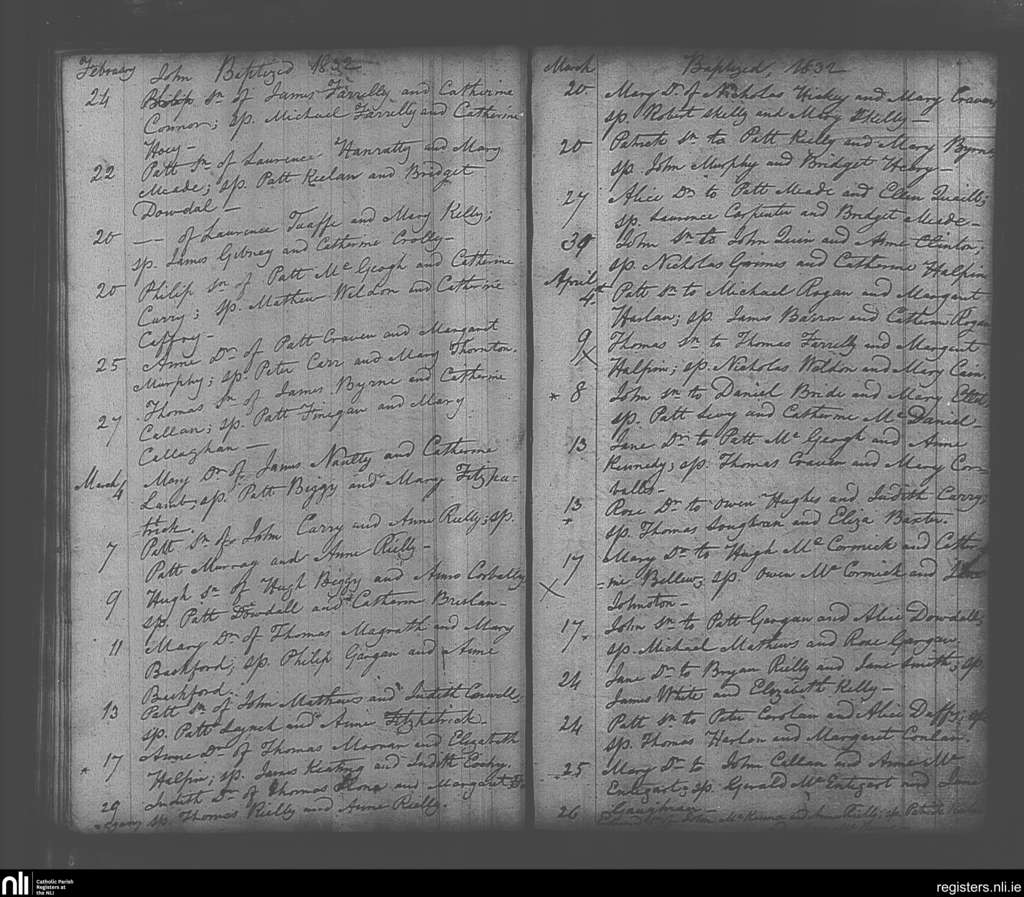 February John Baptized 1832
24 Philip Sn of James Farrelly and Catherine
Connor; sp. Michael Farrelly and Catherine
Hoey-
22 Patt Sn of Laurence Hanratty and Mary
Meade; sp. Patt Keelan and Bridget
Dowdal-
20 -- of Laurence Taaffe and Mary Kelly;
sp. James Gibney and Catherine Crolly-
20 Philip Sn of Patt Mc Geogh and Catherine
Curry; sp. Mathew Weldon and Catherine
Caffrey-
25 Anne Dr of Patt Craven and Margaret
Murphy; sp. Peter Carr and Mary Thornton.
27 Thomas Sn of James Byrne and Catherine
Callan; sp. Patt Finegan and Mary
Callaghan-
March 4 Mary Dr of James Naulty and Catherine
Lamb; sp. Patt Biggy and Mary Fitzpa=
trick.
7 Patt Sn of John Carry and Anne Rielly; sp.
Patt Murray and Anne Rielly-
9 Hugh Sn of Hugh Biggy and Anne Corbally
sp. Patt Dowdall and Catherine Breslan-
11 Mary Dr of Thomas Magrath and Mary
Backford; sp. Philip Gargan and Anne
Backford.
13 Patt Sn of John Mathews and Judith Conwell;
sp. Patt Lynch and Anne Fitzpatrick.
* 17 Anne Dr of Thomas Moonan and Elizabeth
Halpin; sp. James Keating and Judith
29 Judith Dr of Thomas and Margaret
sp. Thomas Rielly and Anne Rielly.
March Baptized, 1832
20 Mary Dr of Nicholas Hickey and Mary Craven
sp. Robert Skelly and Mary Skelly-
20 Patrick Sn to Patt Rielly and Mary Byrne
sp. John Murphy and Bridget Henry-
27 Alice Dr to Patt Meade and Ellen Quaill;
sp. Laurence Carpenter and Bridget Meade-
30 John Sn to John Quin and Anne Clinton;
sp. Nicholas Grimes and Catherine Halpin
April 4th Patt Sn to Michael Rogan and Margaret
Harlan; sp. James Barron and Catherine Rogan
9 X Thomas Sn to Thomas Farrelly and Margaret
Halpin; sp. Nicholas Weldon and Mary Cain.
* 8 John Sn to Daniel Bride and Mary
sp. Patt Levy and Catherine Mc Daniel-
13 Jane Dr to Patt Mc Geogh and Anne
Kennedy; sp. Thomas Craven and Mary Cor=
ballis-
13 Rose Dr to Owen Hughes and Judith Carry;
sp. Thomas Soughran and Eliza Baxter.
17 X Mary Dr to Hugh Mc Cormick and Cather
=ine Bellew; sp. Owen Mc Cormick and
Johnston-
17 John Sn to Patt Gargan and Alice Dowdall;
sp. Michael Mathews and Rose Gargan.
24 Jane Dr to Bryan Rielly and Jane Smith; sp.
James White and Elizabeth Kelly-
24 Patt Sn to Peter Carolan and Alice Duffy; sp
sp. Thomas Harlon and Margaret Conlan.
25 Mary Dr to John Callan and Anne Mc
Entegart; sp. Gerald Mc Entegart and Jane
Gaughran
26 John Mc Kenna and Anne Rielly; sp. Patrick
nli
Catholic Parish
Registers at
the NLI
registers.nli.ie